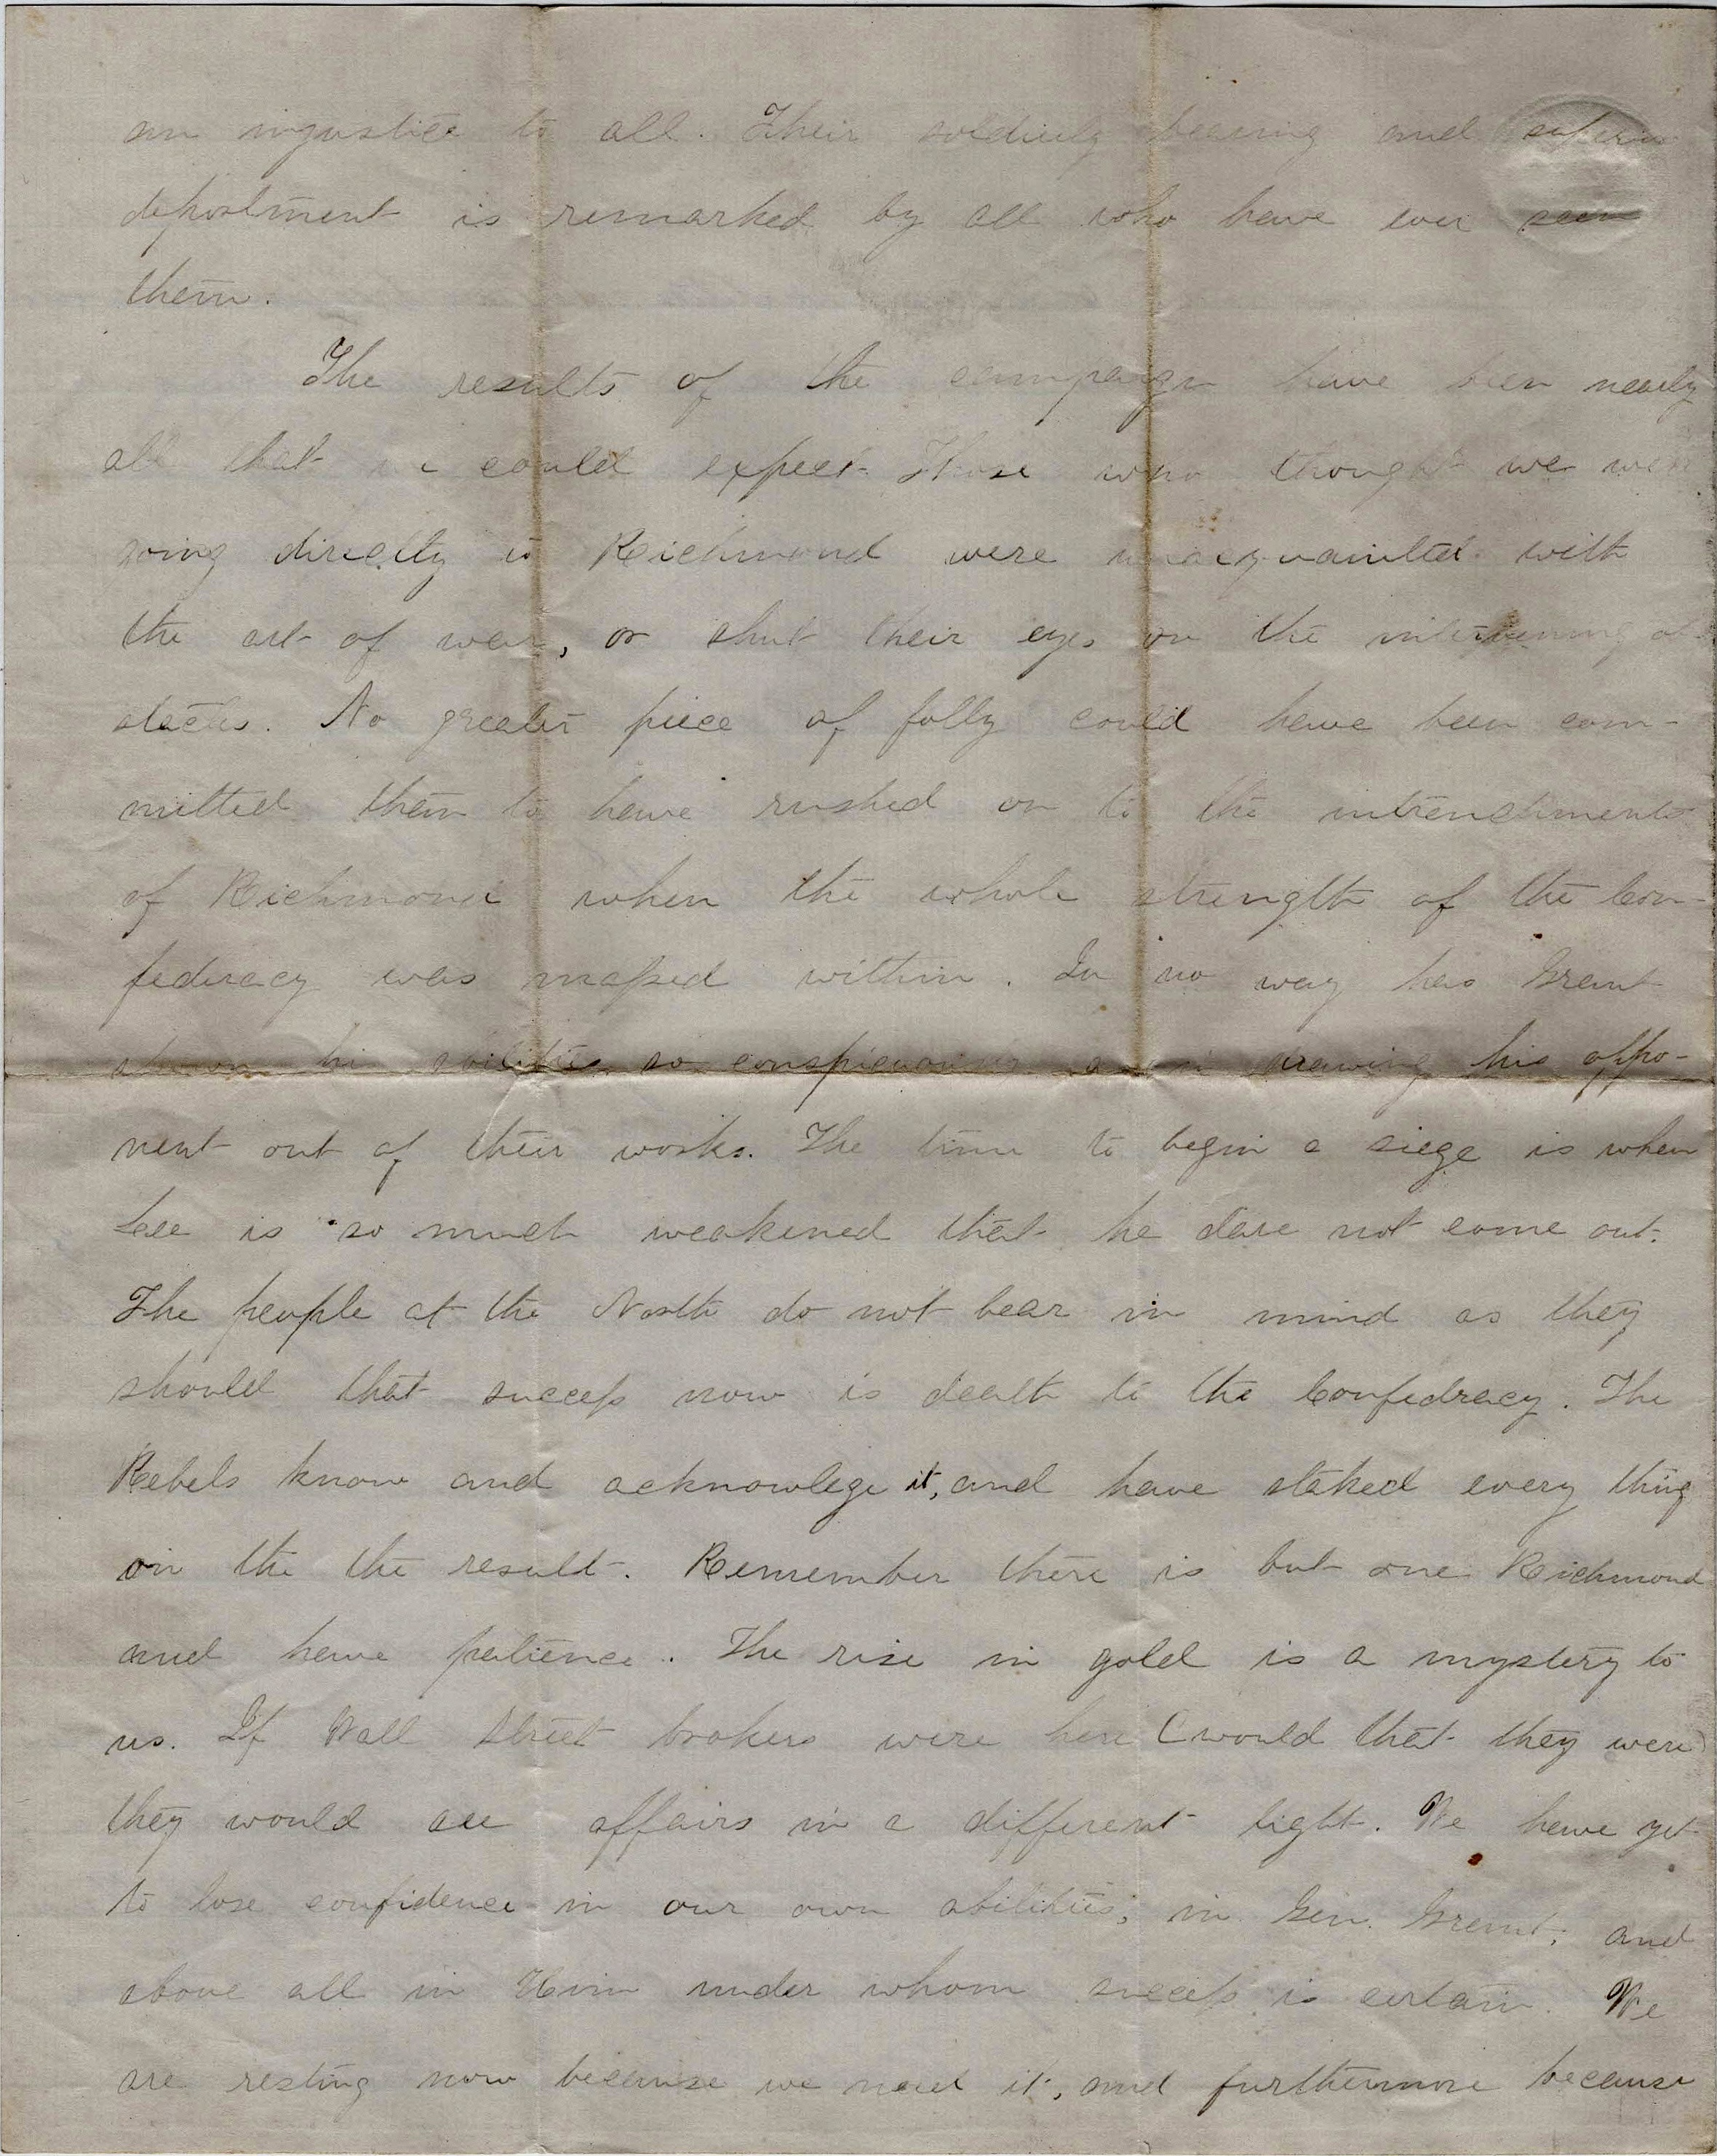 an injustice to all. Their soldierly bearing and superior
deportment is remarked by all who have ever seen
them.
The results of the campaign have been nearly
all that we could expect. Those who thought we were
going directly to Richmond were unacquainted with
the art of war, or shut their eyes on the intervening ob-
stacles. No greater piece of folly could have been com-
mitted than to have rushed on to the intrenchments
of Richmond when the whole strength of the Con-
federacy was massed within. In no way has Grant
shown his abilities so conspicuously as in drawing his oppo-
nent out of their works. The time to begin a siege is when
Lee is so much weakened that he dare not come out.
The people at the North do not bear in mind as they
should that success now is death to the Confedracy. The
Rebels know and acknowlege it, and have staked every thing
on the the result. Remember there is but one Richmond
and have patience. The rise in gold is a mystery to
us. If Wall Street brokers were here (would that they were)
they would see affairs in a different light. We have yet
to lose confidence in our own abilities; in Gen. Grant; and
above all in Him under whom success is certain. We
are resting now because we need it, and furthermore because